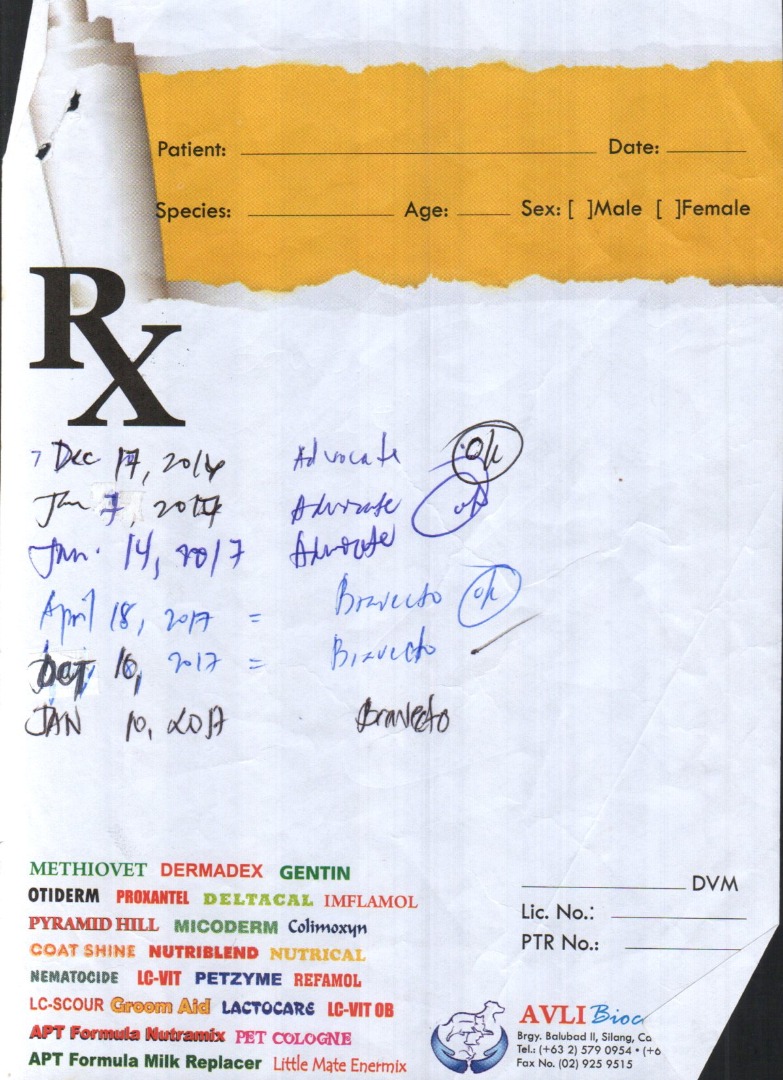 Patient: Date:
Species: Age: Sex: [ ]Male [ ]Female
RX
Dec 17, 2016 Advocate ok
Jan 7, 2017 Advocate ok
Jan. 14, 2017 Advocate
April 18, 2017 = Bravecto ok
OCT 10, 2017 = Bravecto
JAN 10, 2017 Bravecto
METHIOVET DERMADEX GENTIN
OTIDERM PROXANTEL DELTACAL IMFLAMOL
PYRAMID HILL MICODERM Colimoxyn
COAT SHINE NUTRIBLEND NUTRICAL
NEMATOCIDE LC-VIT PETZYME REFAMOL
LC-SCOUR Groom Aid LACTOCARE LC-VIT OB
APT Formula Nutramix PET COLOGNE
APT Formula Milk Replacer Little Mate Enermix
DVM
Lic. No.:
PTR No.:
AVLI Bioc
Brgy. Balubad II, Silang, Ca
Tel.: (+63 2) 579 0954 • (+6
Fax No. (02) 925 9515